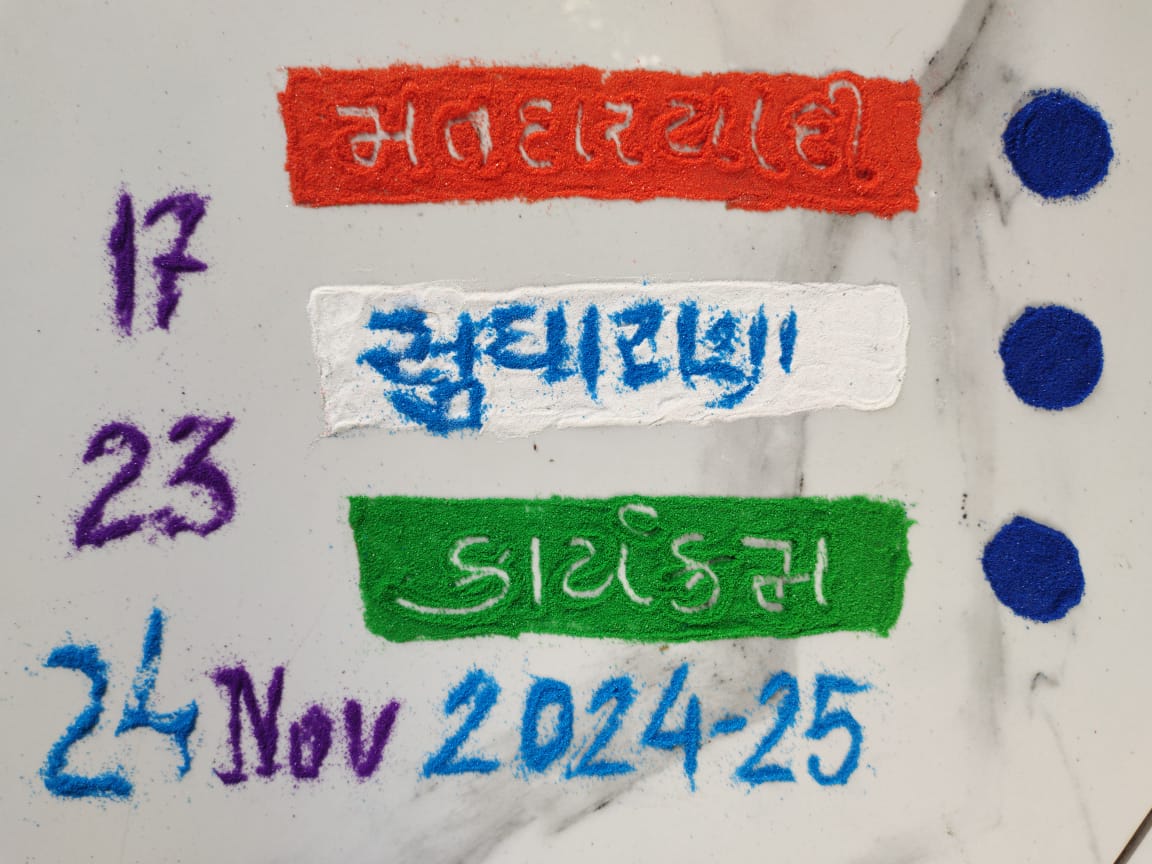 મતદારયાદી
17
સુધારણા
23
કાર્યક્રમ
24 Nov 2024-25